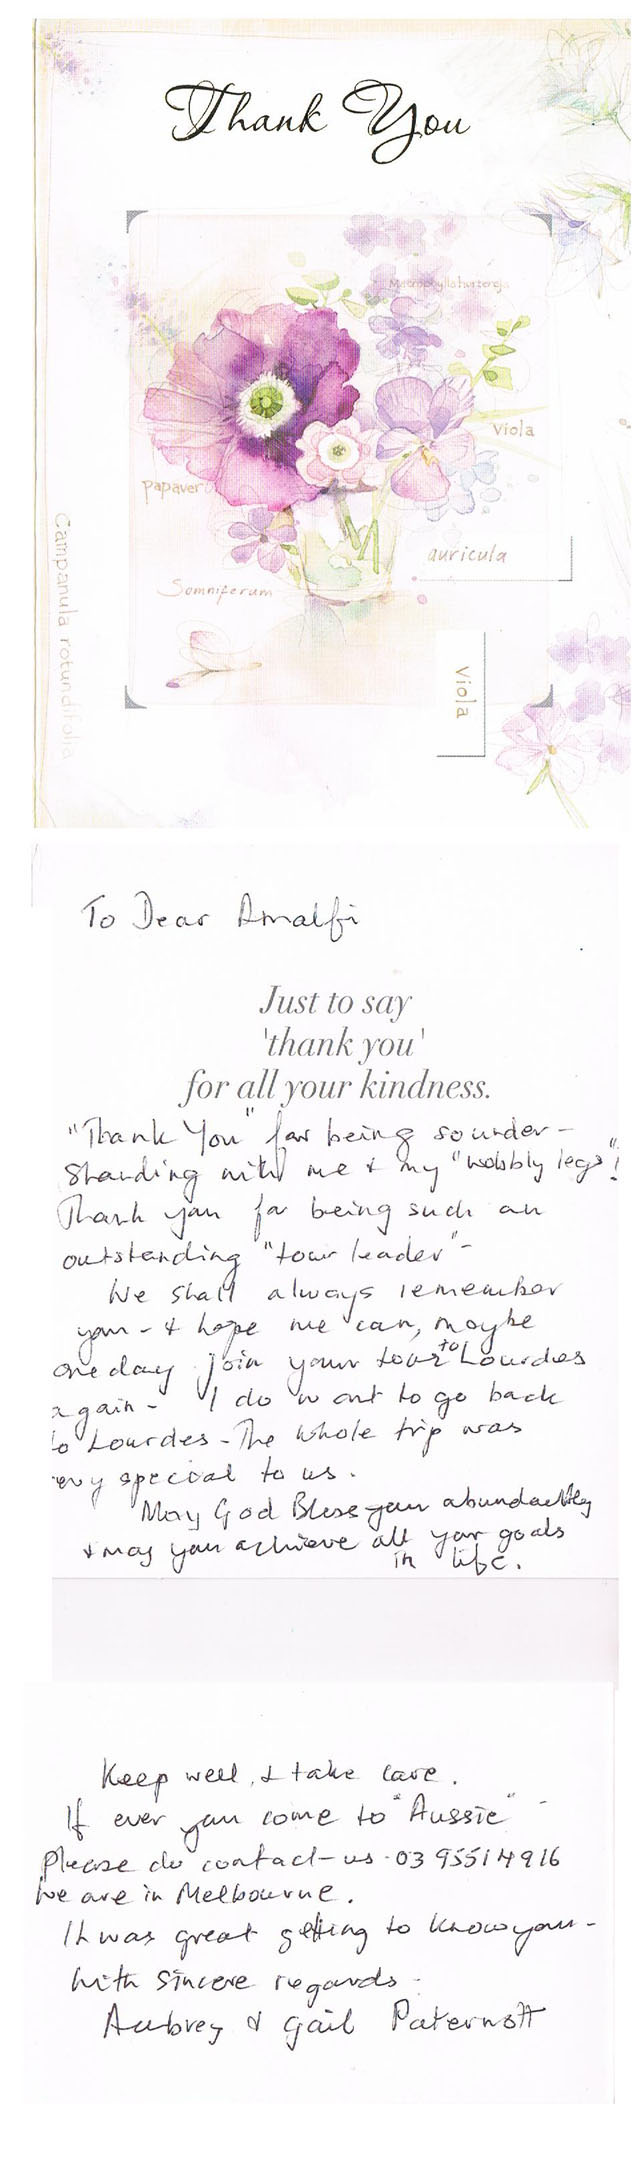 Thank You
Macrophylla hortensja
viola
papaver
auricula
Somniferum
Campanula rotundifolia
viola
To Dear Amalfi
Just to say
'thank you'
for all your kindness.
"Thank You" for being so under-
standing with me & my "wobbly legs"!
Thank you for being such an
outstanding "tour leader"-
We shall always remember
you - & hope we can, maybe
one day join your tour to Lourdes
again - I do want to go back
to Lourdes - The whole trip was
very special to us.
May God Bless you abundantly
& may you achieve all your goals
in life.
Keep well, & take care.
If ever you come to "Aussie" -
Please do contact-us - 03 95514916
We are in Melbourne.
It was great getting to know you -
With sincere regards -
Aubrey & Gail Paternott